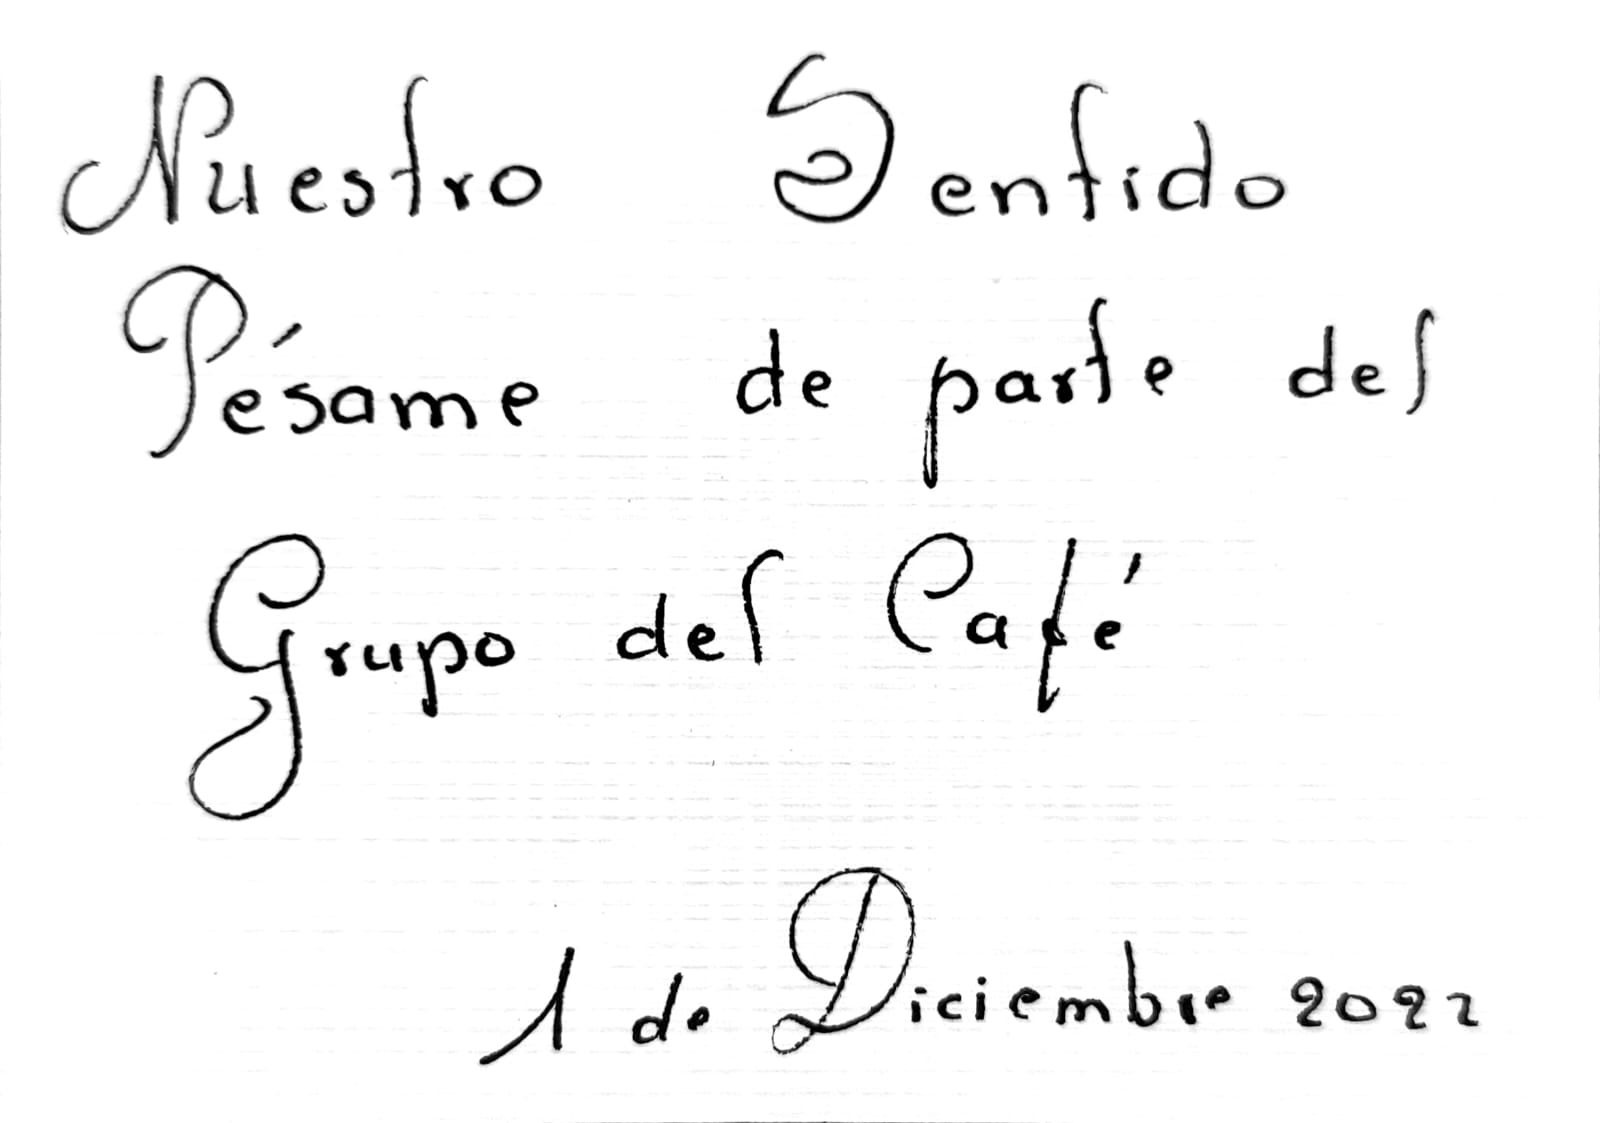 Nuestro Sentido
Pésame de parte del
Grupo del Café
1 de Diciembre 2022